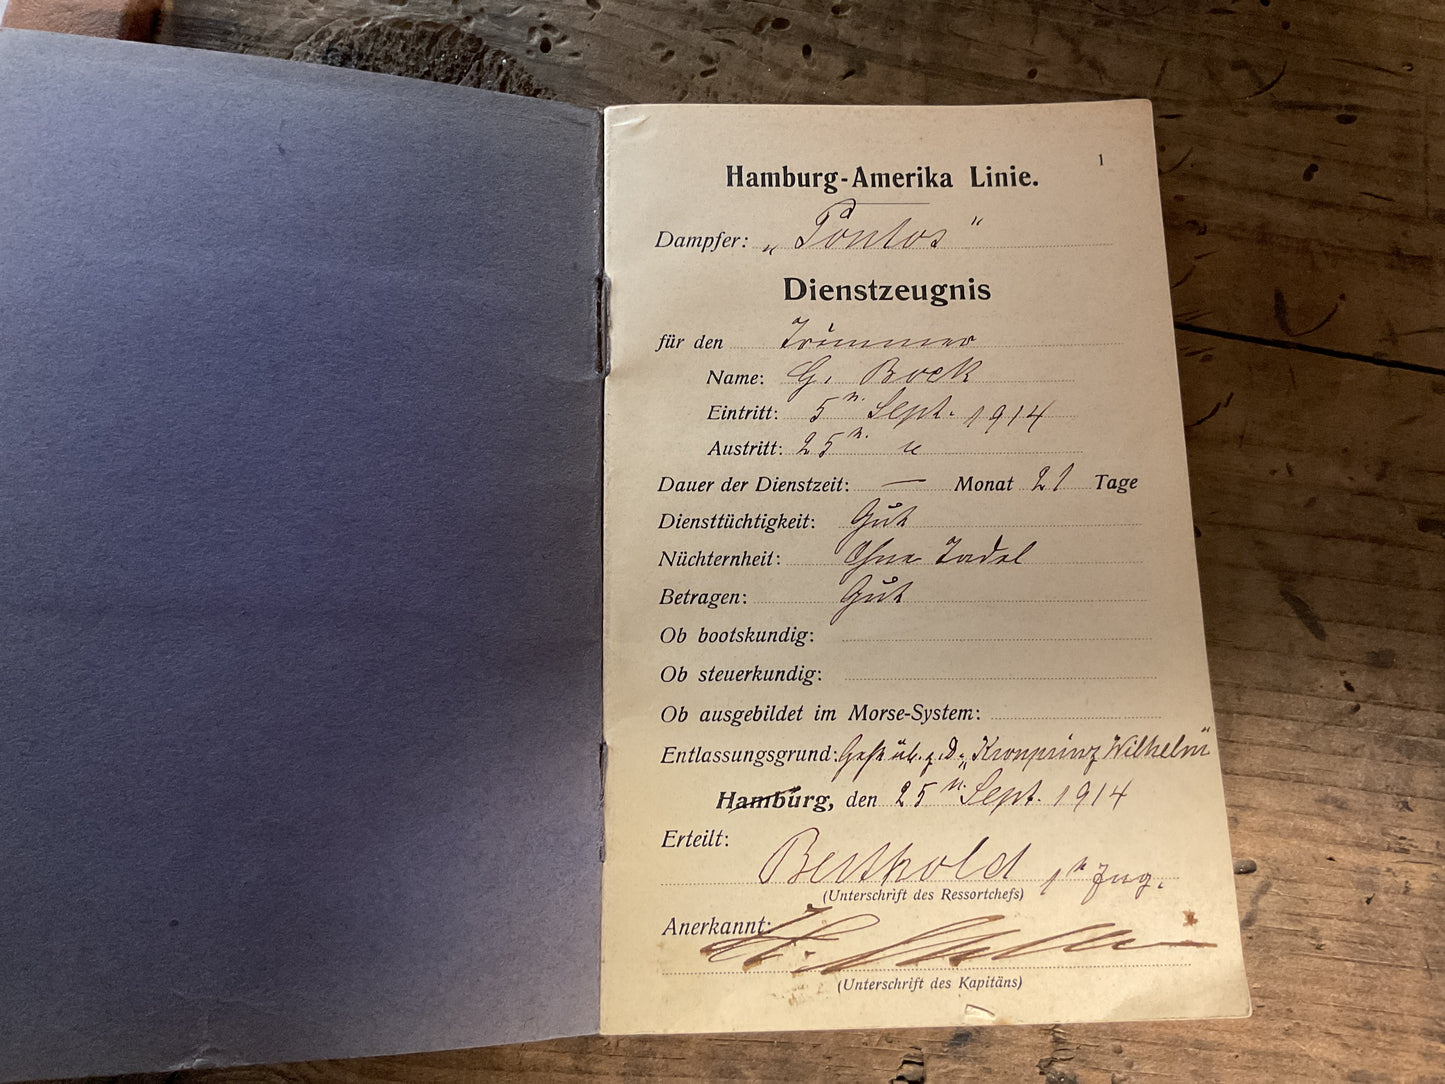 1
Hamburg-Amerika Linie.
Dampfer: „Pontos"
Dienstzeugnis
für den Trimmer
Name: G. Bock
Eintritt: 5ⁿ. Sept. 1914
Austritt: 25ⁿ. "
Dauer der Dienstzeit: — Monat 21 Tage
Diensttüchtigkeit: Gut
Nüchternheit: Ohne Tadel
Betragen: Gut
Ob bootskundig:
Ob steuerkundig:
Ob ausgebildet im Morse-System:
Entlassungsgrund: z. D. „Kronprinz Wilhelm"
Hamburg, den 25ⁿ. Sept. 1914
Erteilt:
Berthold 1ⁿ Ing.
(Unterschrift des Ressortchefs)
Anerkannt:
(Unterschrift des Kapitäns)